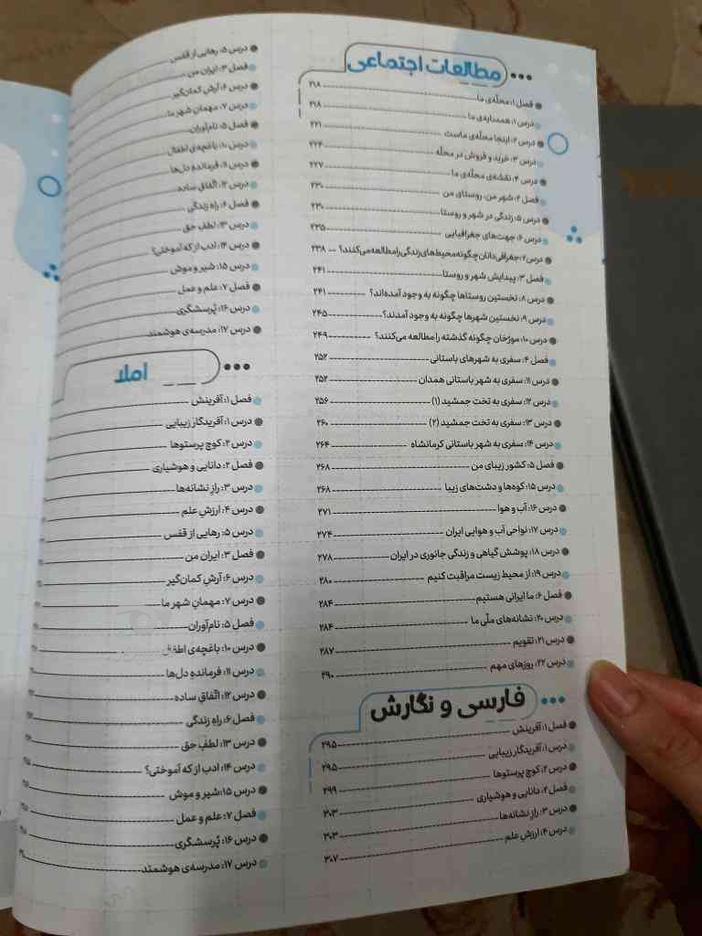 مطالعات اجتماعی
فصل ۱: محلّه‌ی ما ۲۱۸
درس ۱: همسایه‌ی ما ۲۱۸
درس ۲: اینجا محلّه‌ی ماست ۲۲۱
درس ۳: خرید و فروش در محلّه ۲۲۴
درس ۴: نقشه‌ی محلّه‌ی ما ۲۲۷
فصل ۲: شهر من، روستای من ۲۳۰
درس ۵: زندگی در شهر و روستا ۲۳۰
درس ۶: جهت‌های جغرافیایی ۲۳۵
درس ۷: جغرافی‌دانان چگونه محیط‌های زندگی را مطالعه می‌کنند؟ ۲۳۸
فصل ۳: پیدایش شهر و روستا ۲۴۱
درس ۸: نخستین روستاها چگونه به وجود آمده‌اند؟ ۲۴۱
درس ۹: نخستین شهرها چگونه به وجود آمدند؟ ۲۴۵
درس ۱۰: مورّخان چگونه گذشته را مطالعه می‌کنند؟ ۲۴۹
فصل ۴: سفری به شهرهای باستانی ۲۵۲
درس ۱۱: سفری به شهر باستانی همدان ۲۵۲
درس ۱۲: سفری به تخت جمشید (۱) ۲۵۶
درس ۱۳: سفری به تخت جمشید (۲) ۲۶۰
درس ۱۴: سفری به شهر باستانی کرمانشاه ۲۶۴
فصل ۵: کشور زیبای من ۲۶۸
درس ۱۵: کوه‌ها و دشت‌های زیبا ۲۶۸
درس ۱۶: آب و هوا ۲۷۱
درس ۱۷: نواحی آب و هوایی ایران ۲۷۴
درس ۱۸: پوشش گیاهی و زندگی جانوری در ایران ۲۷۸
درس ۱۹: از محیط زیست مراقبت کنیم ۲۸۰
فصل ۶: ما ایرانی هستیم ۲۸۴
درس ۲۰: نشانه‌های ملّی ما ۲۸۴
درس ۲۱: تقویم ۲۸۷
درس ۲۲: روزهای مهم ۲۹۰
فارسی و نگارش
فصل ۱: آفرینش ۲۹۵
درس ۱: آفریدگار زیبایی ۲۹۵
درس ۲: کوچ پرستوها ۲۹۹
فصل ۲: دانایی و هوشیاری ۳۰۳
درس ۳: رازِ نشانه‌ها ۳۰۳
درس ۴: ارزشِ علم ۳۰۷
درس ۵: رهایی از قفس
فصل ۳: ایران من
درس ۶: آرش کمان‌گیر
درس ۷: مهمانِ شهر ما
فصل ۵: نام‌آوران
درس ۱۰: باغچه‌ی اطفال
درس ۱۱: فرمانده دل‌ها
درس ۱۲: اتّفاق ساده
فصل ۶: راه زندگی
درس ۱۳: لطفِ حق
درس ۱۴: ادب از که آموختی؟
درس ۱۵: شیر و موش
فصل ۷: علم و عمل
درس ۱۶: پُرسشگری
درس ۱۷: مدرسه‌ی هوشمند
املا
فصل ۱: آفرینش
درس ۱: آفریدگار زیبایی
درس ۲: کوچ پرستوها
فصل ۲: دانایی و هوشیاری
درس ۳: رازِ نشانه‌ها
درس ۴: ارزشِ علم
درس ۵: رهایی از قفس
فصل ۳: ایران من
درس ۶: آرش کمان‌گیر
درس ۷: مهمانِ شهر ما
فصل ۵: نام‌آوران
درس ۱۰: باغچه‌ی اطفال
درس ۱۱: فرمانده دل‌ها
درس ۱۲: اتّفاق ساده
فصل ۶: راه زندگی
درس ۱۳: لطفِ حق
درس ۱۴: ادب از که آموختی؟
درس ۱۵: شیر و موش
فصل ۷: علم و عمل
درس ۱۶: پُرسشگری
درس ۱۷: مدرسه‌ی هوشمند